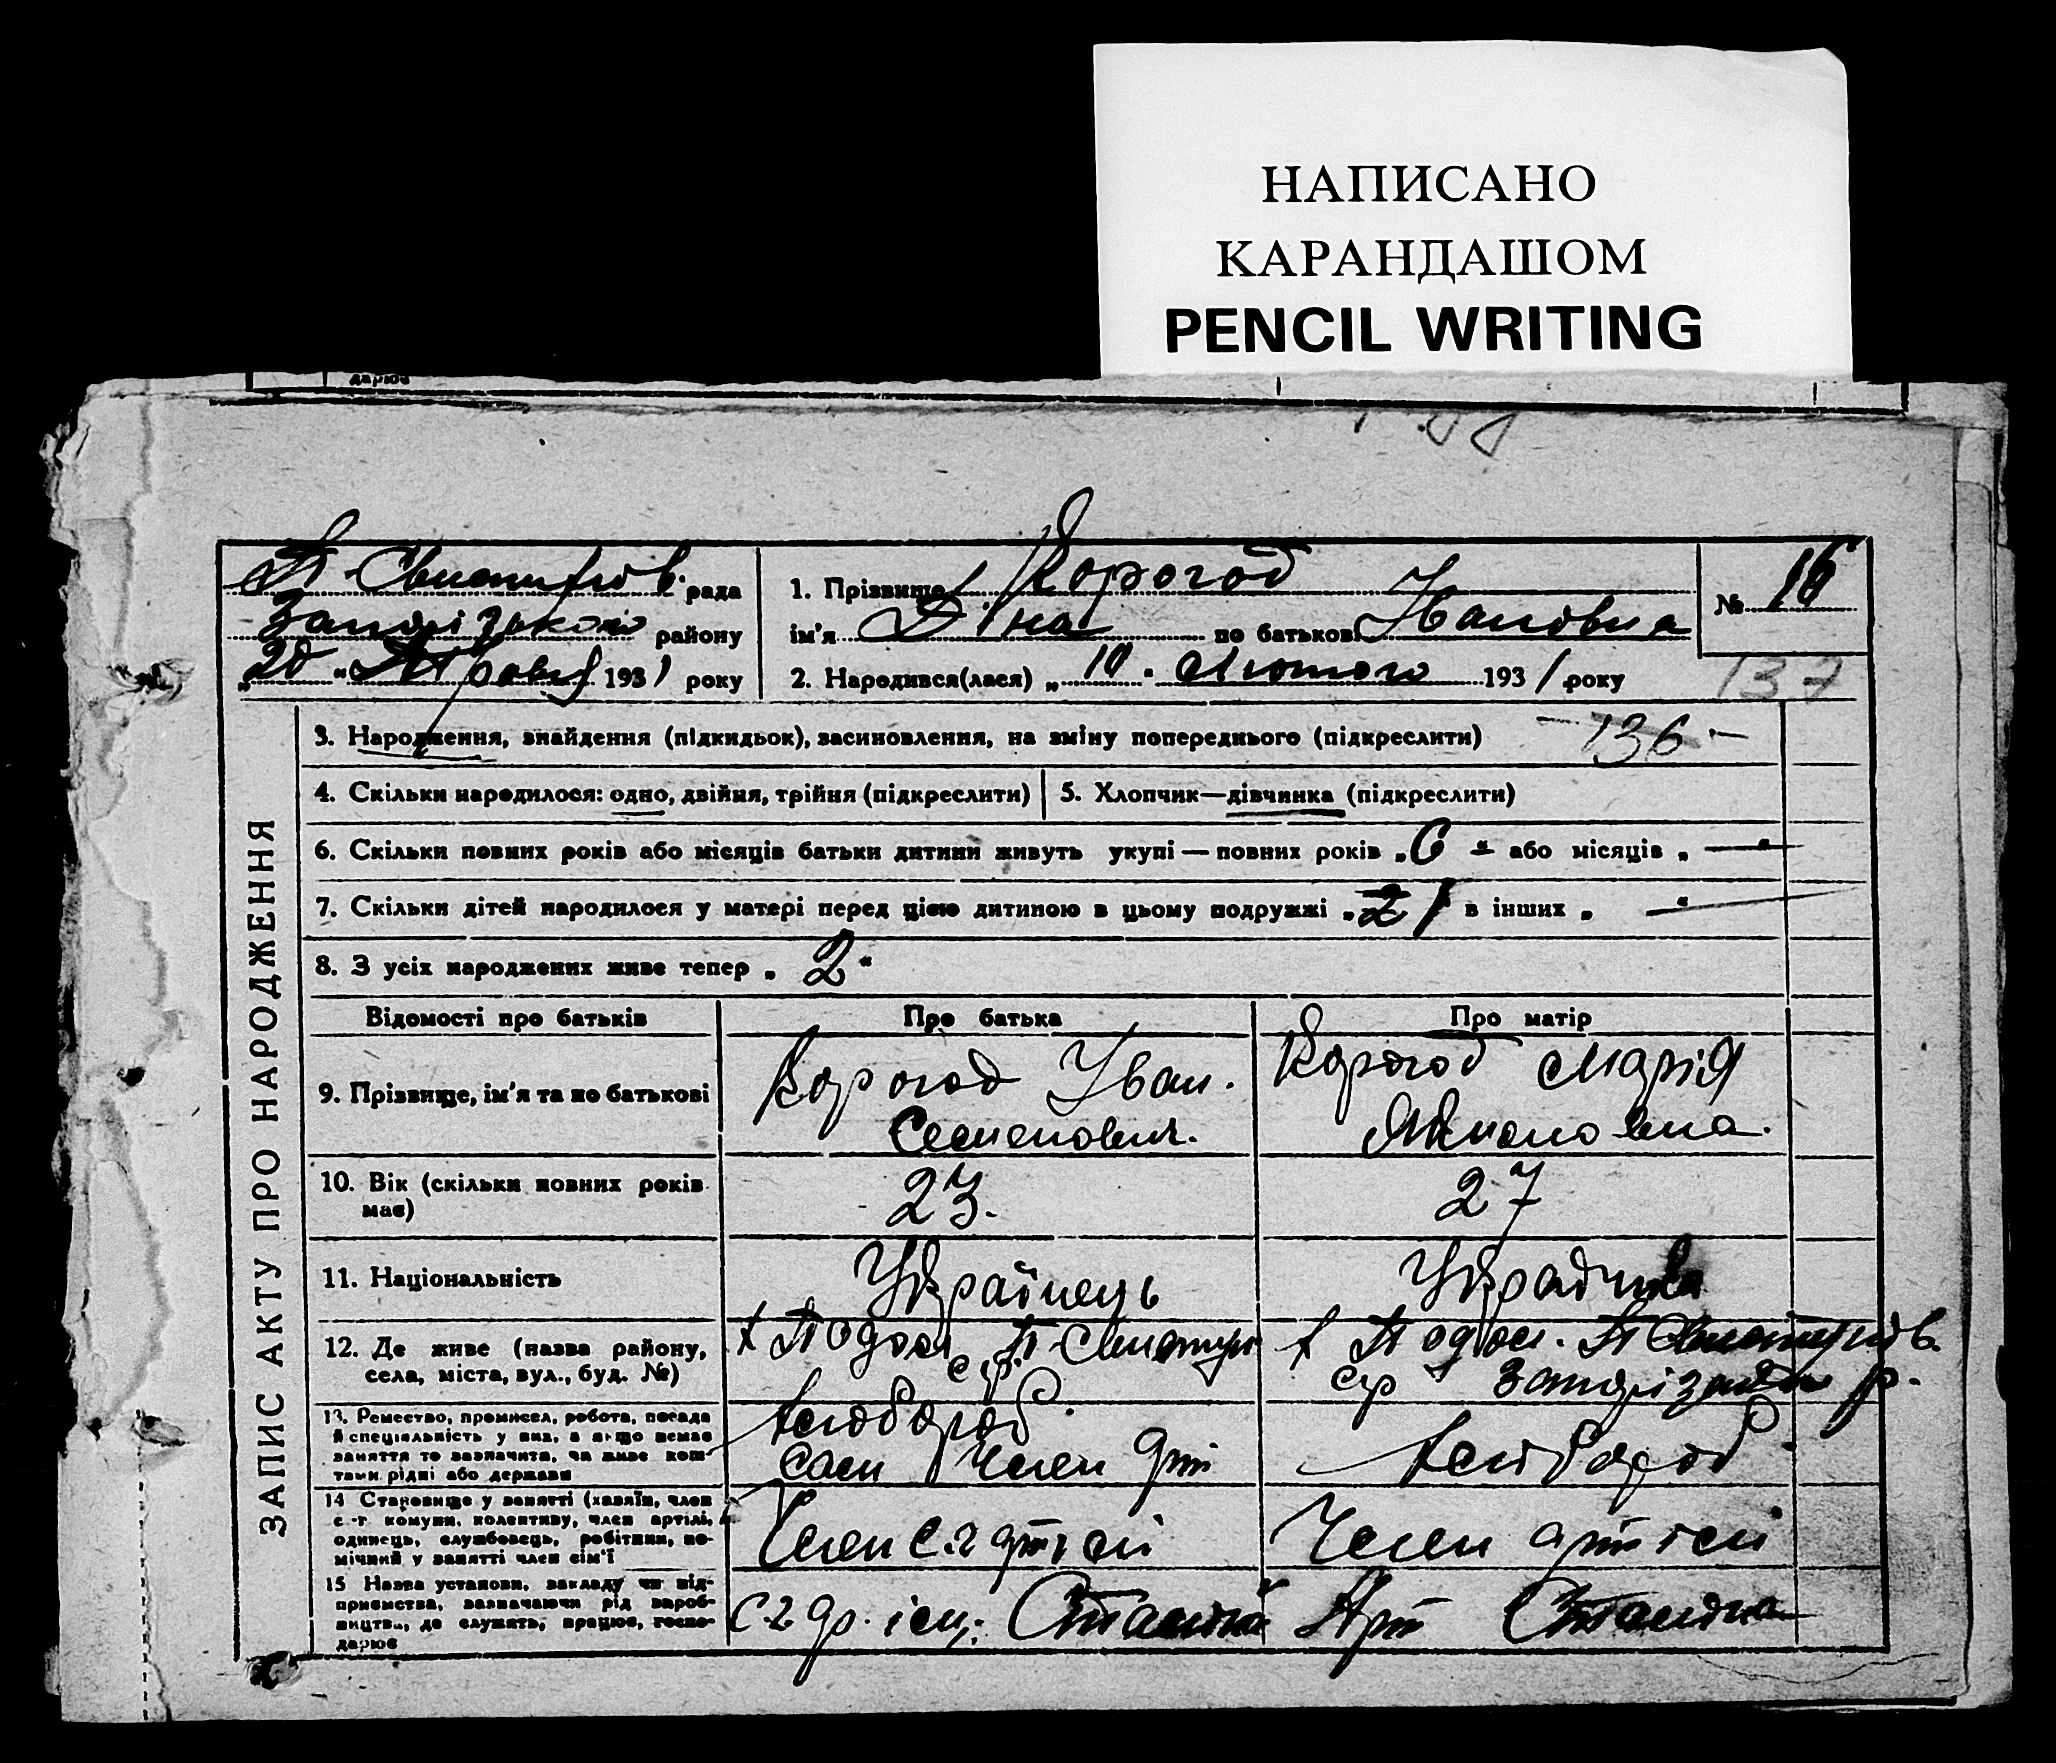 НАПИСАНО
КАРАНДАШОМ
PENCIL WRITING
дарює
рада
району
" 20 " 1931 року
1. Прізвище Корогод
ім'я Ніна по батькові Івановна
2. Народився(лася) „ 10 " Лютого 1931 року
№ 16
137
3. Народження, знайдення (підкидьок), засиновлення, на зміну попереднього (підкреслити) - 136 -
4. Скільки народилося: одно, двійня, трійня (підкреслити) 5. Хлопчик—дівчинка (підкреслити)
6. Скільки повних років або місяців батьки дитини живуть укупі — повних років „ 6 " або місяців „ — "
7. Скільки дітей народилося у матері перед цією дитиною в цьому подружжі „ " в інших „ — "
8. З усіх народжених живе тепер „ 2 "
ЗАПИС АКТУ ПРО НАРОДЖЕННЯ
Відомості про батьків Про батька Про матір
9. Прізвище, ім'я та по батькові
Корогод Іван.
Семенович.
Корогод Марія
10. Вік (скільки повних років
має)
23.
27
11. Національність Українець Українка
12. Де живе (назва району,
села, міста, вул., буд. №)
ср р.
13. Ремество, промисел, робота, посада
й спеціяльність у них, а якщо немає
заняття то зазначити, чи живе кош-
тами рідні або держави
Хлібороб
Член арт
Хлібороб
14 Становище у занятті (хазяїн, член
с.-г комуни, колективу, член артілі,
одинець, службовець, робітник, по-
мічний у занятті член сім'ї
Член с.г артілі Член артілі
15 Назва установи, закладу чи під-
приємства, зазначаючи рід вироб-
ництва, де служить, працює, госпо-
дарює
Сталіна Арт Сталіна